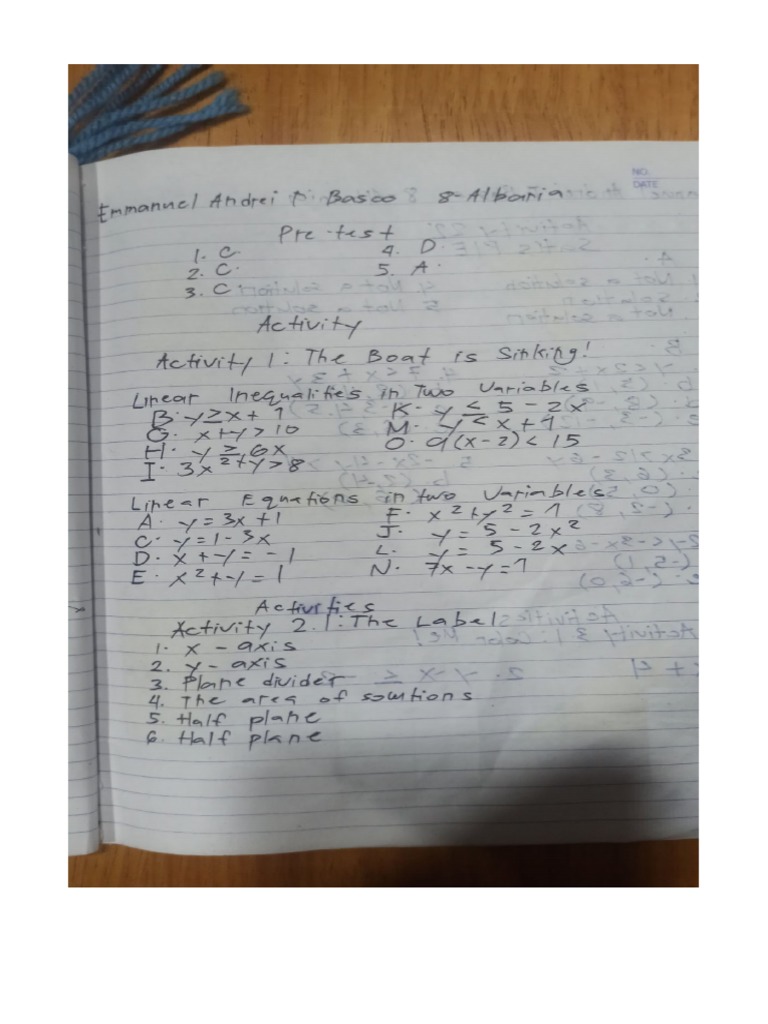 NO.
DATE
Emmanuel Andrei P. Basco 8-Albania
Pre-test
1. C. 4. D.
2. C. 5. A.
3. C
Activity
Activity 1: The Boat is Sinking!
Linear Inequalities in Two Variables
B. y ≥ x + 1 K. y ≤ 5 - 2x
G. x+y > 10 M. y < x + 1
H. y ≥ 6x O. 9(x-2) < 15
I. 3x²+y > 8
Linear Equations in two Variables
A. y = 3x + 1 F. x² + y² = 1
C. y = 1 - 3x J. y = 5 - 2x²
D. x + y = - 1 L. y = 5 - 2x
E. x² + y = 1 N. 7x - y = 1
Activities
Activity 2.1: The Label
1. x - axis
2. y - axis
3. Plane divider
4. The area of solutions
5. Half plane
6. Half plane